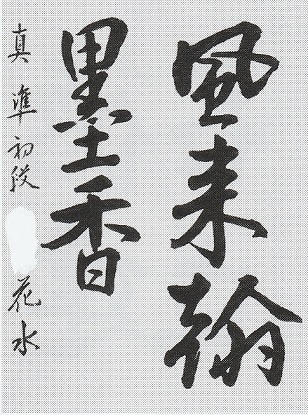 風来翰
墨香
真 準初段 花水